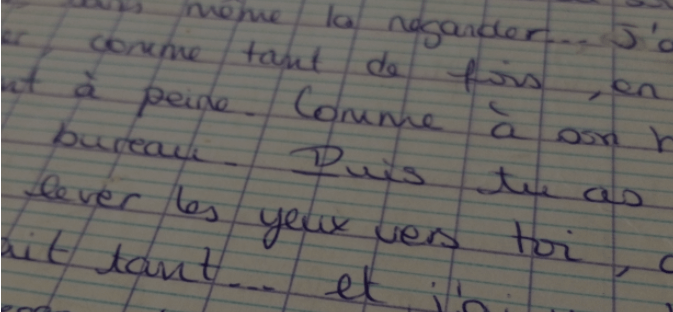 même la regarder... J'
comme tant de fois, en
à peine. Comme à son
bureau. Puis tu as
lever les yeux vers toi,
ait tant... et j'